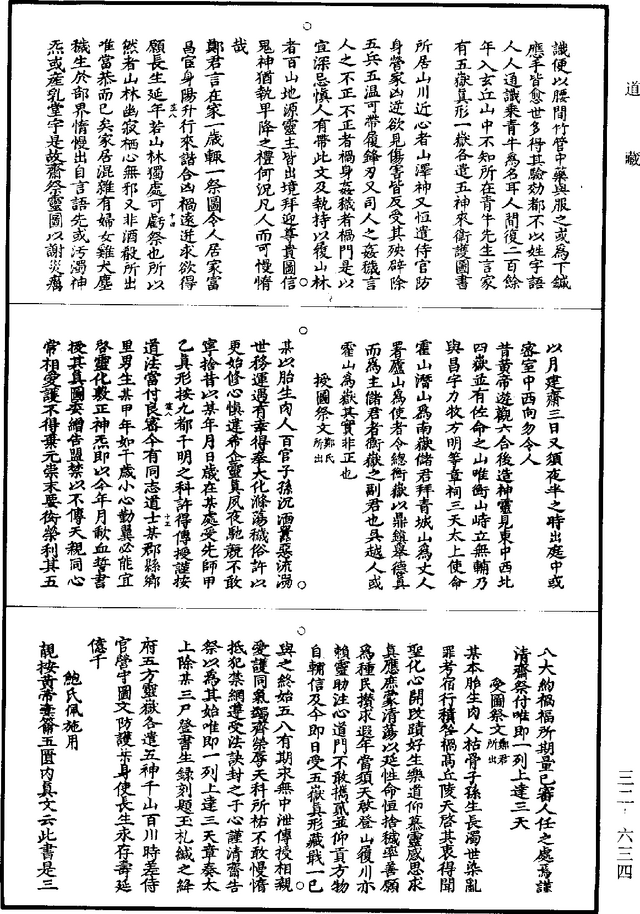 道藏
識便以腰間竹管中藥與服之或為下鍼
應手皆愈世多得其驗効都不以姓字語
人人通識乗青牛為名耳人間復二百餘
年入玄丘山中不知所在青牛先生言家
有五嶽真形一嶽各遣五神來衛護圖書
所居山川近心者山澤神又恒遣侍官防
身營家凶逆欲見傷害皆反受其殃辟除
五兵五温可帶履鋒刃又司人之姦穢言
人之不正不正者禍身姦穢者禍門是以
宜深忌慎人有帶此文及執持以履山林
者百山地源靈主皆出境拜迎尊貴圖信
鬼神猶執卑降之禮何況凡人而可慢惰
哉
鄭君言在家一歲輙一祭圖令人居家富
昌宦身陽升行來諧合凶禍遠迸求欲得
願長生延年若山林獨處可虧祭也所以
然者山林幽寂栖心無邪又非酒殽所出
唯當恭而已矣家居混雜有婦女雞犬塵
穢生於部界惰慢出自言語先或汚濁神
炁或産乳堂宇是故齋祭靈圖以謝災癘
以月建齋三日又須夜半之時出庭中或
密室中西向勿令人
昔黃帝遊觀六合後造神靈見東中西北
四嶽並有佐命之山唯衡山峙立無輔乃
與昌宇力牧方明等章祠三天太上使命
霍山潛山為南嶽儲君拜青城山為丈人
署廬山為使者令總衡嶽以鼎鎮舉德真
而為主儲君者衡嶽之副君也吳越人或
霍山為嶽其實非正也
授圖祭文鄭氏所出
某以胎生肉人百官子孫沉湎罾惡流湯
世務運遇有幸得奉大化滌蕩穢俗許以
更始修心慎違希企靈真夙夜馳競不敢
寧捨昔以某年月日歲在某處受先師甲
乙真形按九都千明之科許得傳授謹按
道法當付良審今有同志道士某郡縣鄉
里男生某甲年如干歲小心勤翼必能宣
啓靈化敷正神炁即以今年月歃血誓書
授其真圖委繒告盟禁以不傳天親同心
常相愛護不得棄元祟末要衒榮利其五
八大約禍福所期量已審人任之處焉謹
清齋祭付唯即一列上達三天
受圖祭文鄭君所出
某本胎生肉人枯骨子孫生長濁世染亂
罪考宿行積咎禍髙丘陵天啓其衷得聞
聖化心開改蹟好生樂道仰慕靈感思求
真應庶蒙清蕩以延性命恒捨穢率善願
為種民攢求遐年當須天啓登山履川亦
賴靈助注心道門不敢攜貳並仰貢方物
自輔信及今即日受五嶽真形藏戢一已
與之終始五八有期求無中泄傳授相親
愛護同氣蠲齊榮辱天科所祐不敢慢惰
抵犯禁網遵受法訣封之于心謹清齋告
祭以為其始唯即一列上達三天章奏太
上除某三尸登書生錄刻題玉札緘之絳
府五方靈嶽各遣五神千山百川時差侍
官營守圖文防護某身使長生永存壽延
億千
鮑氏佩施用
靚按黃帝壺籥五匱内真文云此書是三
三二·六三四